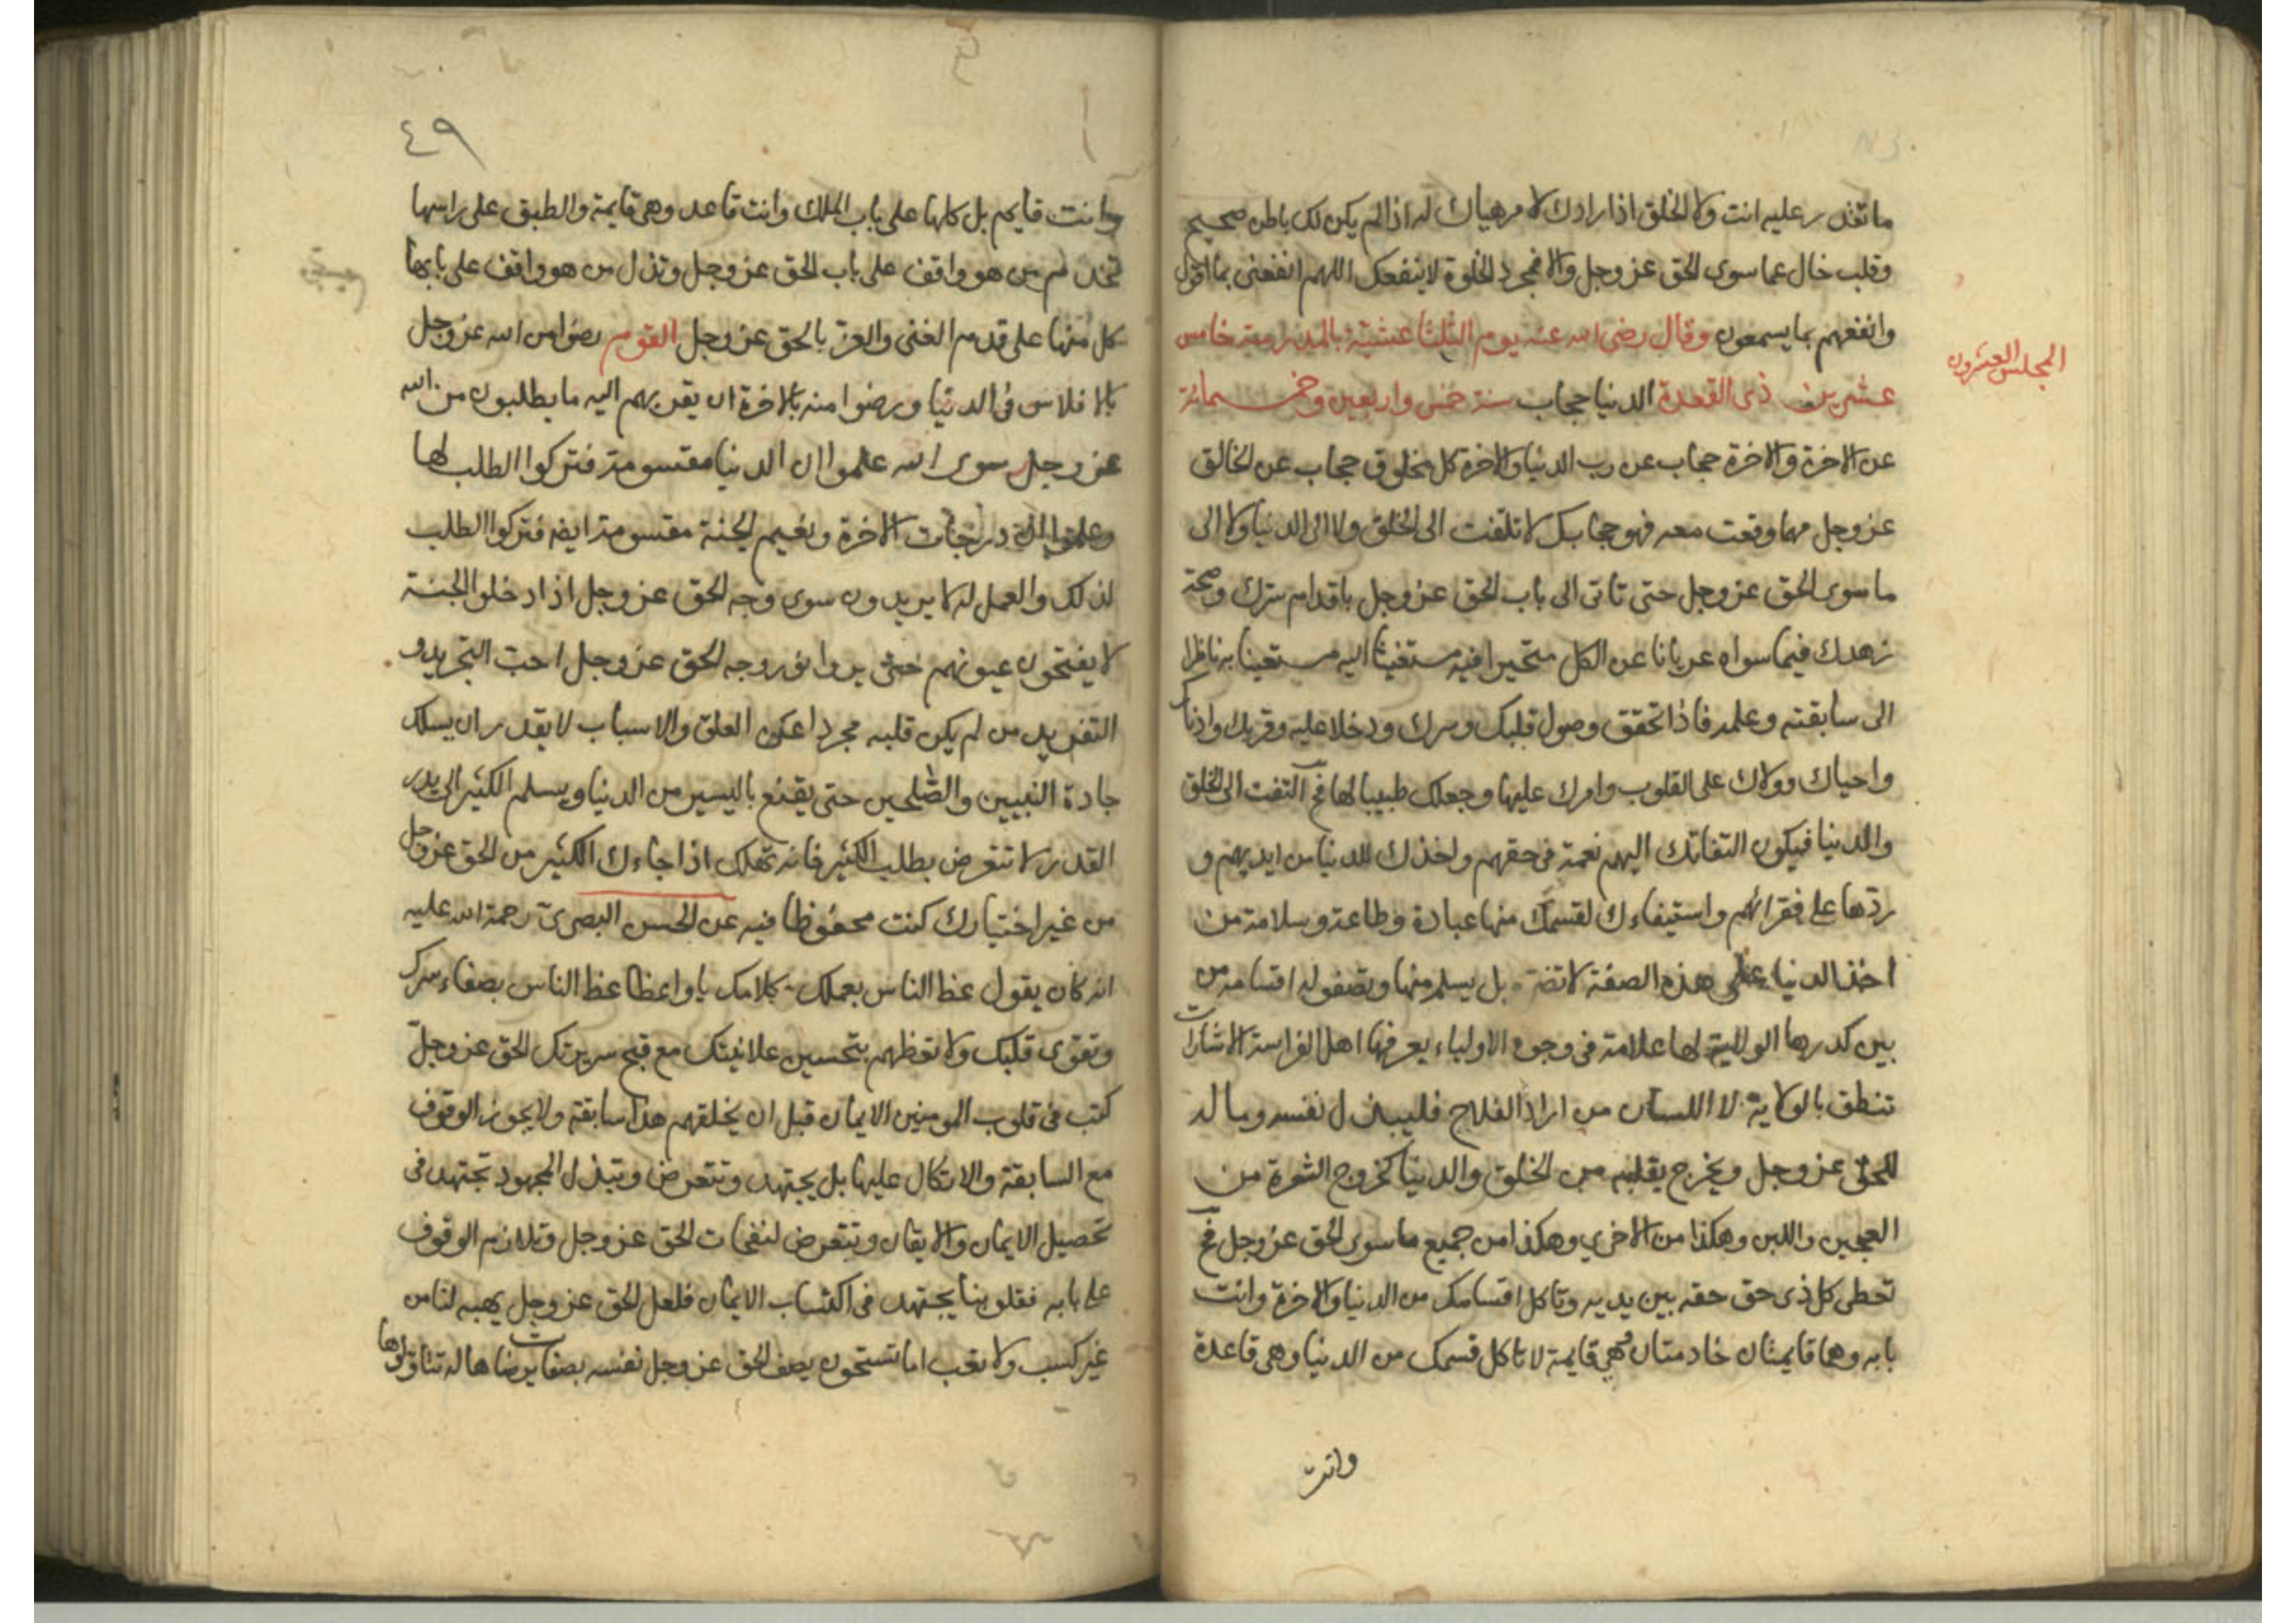 ما تقدر عليه انت ولا الخلق اذا ارادك لامر هياك له اذا لم يكن لك باطن صحيح
وقلب خال عما سوى الحق عز وجل والا فمجرد الخلوة لا ينفعك اللهم انفعنى بما اقول
وانفعهم بما يسمعون وقال رضى الله عنه يوم الثلثا عشية بالمدرسة خامس
المجلس العشرون
عشرين ذى القعدة الدنيا حجاب سنة خمس واربعين وخمسمائة
عن الاخرة والاخرة حجاب عن رب الدنيا والاخرة كل مخلوق حجاب عن الخالق
عز وجل مهما وقعت معه فهو حجابك لا تلتفت الى الخلق ولا الى الدنيا ولا الى
ما سوى الحق عز وجل حتى تاتى الى باب الحق عز وجل باقدام سرك وصحة
زهدك فيما سواه عريانا عن الكل متحيرا فيه مستغيثا اليه مستعينا به ناظرا
الى سابقته وعلمه فاذا تحقق وصول قلبك وسرك ودخلا عليه وقربك وادناك
واحياك وولاك على القلوب وامرك عليها وجعلك طبيبا لها فح التفت الى الخلق
والدنيا فيكون التفاتك اليهم نعمة فى حقهم واخذك للدنيا من ايديهم و
ردها على فقرائهم واستيفاءك لقسمك منها عبادة وطاعة وسلامة من
اخذ الدنيا على هذه الصفة لا تضره بل يسلم منها ويصفو له اقسامه من
بين كدرها الولاية لها علامة فى وجوه الاولياء يعرفها اهل الفراسة الاشارات
تنطق بالولاية لا اللسان من اراد الفلاح فليبذل نفسه وماله
للحق عز وجل ويخرج بقلبه من الخلق والدنيا كخروج الشعرة من
العجين واللبن وهكذا من الاخري وهكذا من جميع ما سوى الحق عز وجل فح
تعطى كل ذى حق حقه بين يديه وتاكل اقسامك من الدنيا والاخرة وانت
بابه وهما قايمتان خادمتان قايمة لا تاكل قسمك من الدنيا وهى قاعدة
وانت
٤٩
وانت قايم بل كلها على باب الملك وانت قاعد وهى قايمة والطبق على راسها
تخدم من هو واقف على باب الحق عز وجل وتذل من هو واقف على بابها
كل منها على قدم الغنى والعز بالحق عز وجل القوم رضوا من الله عز وجل
بالافلاس فى الدنيا ورضوا منه بالاخرة ان يقربهم اليه ما يطلبون من الله
عز وجل سوى الله علموا ان الدنيا مقسومة فتركوا الطلب لها
وعلموا ان درجات الاخرة ونعيم الجنة مقسومة ايضا فتركوا الطلب
لذلك والعمل له لا يريدون سوى وجه الحق عز وجل اذا دخلوا الجنة
لا يفتحون عيونهم حتى يروا نور وجه الحق عز وجل احب التجريد و
التفريد من لم يكن قلبه مجردا عن الخلق والاسباب لا يقدر ان يسلك
جادة النبيين والصلحين حتى يقنع باليسير من الدنيا ويسلم الكثير الى يد
القدر لا تتعرض بطلب الكثير فانه تهلك اذا جاءك الكثير من الحق عز وجل
من غير اختيارك كنت محفوظا فيه عن الحسن البصرى رحمة الله عليه
انه كان يقول عظ الناس بعملك وكلامك يا واعظا عظ الناس بصفاء سرك
وتقوى قلبك ولا تعظهم بتحسين علانيتك مع قبح سريرتك الحق عز وجل
كتب فى قلوب المومنين الايمان قبل ان يخلقهم هذا سابقة ولا يجوز الوقوف
مع السابقة والاتكال عليها بل يجتهد وتتعرض وتبذل المجهود تجتهد فى
تحصيل الايمان والايقان ويتعرض لنفحات الحق عز وجل وتلازم الوقوف
على بابه فقلوبنا يجتهد فى اكتساب الايمان فلعل الحق عز وجل يهبه لنا من
غير كسب ولا تعب اما تستحون يصف الحق عز وجل نفسه بصفات يرضاها له تتاولوها